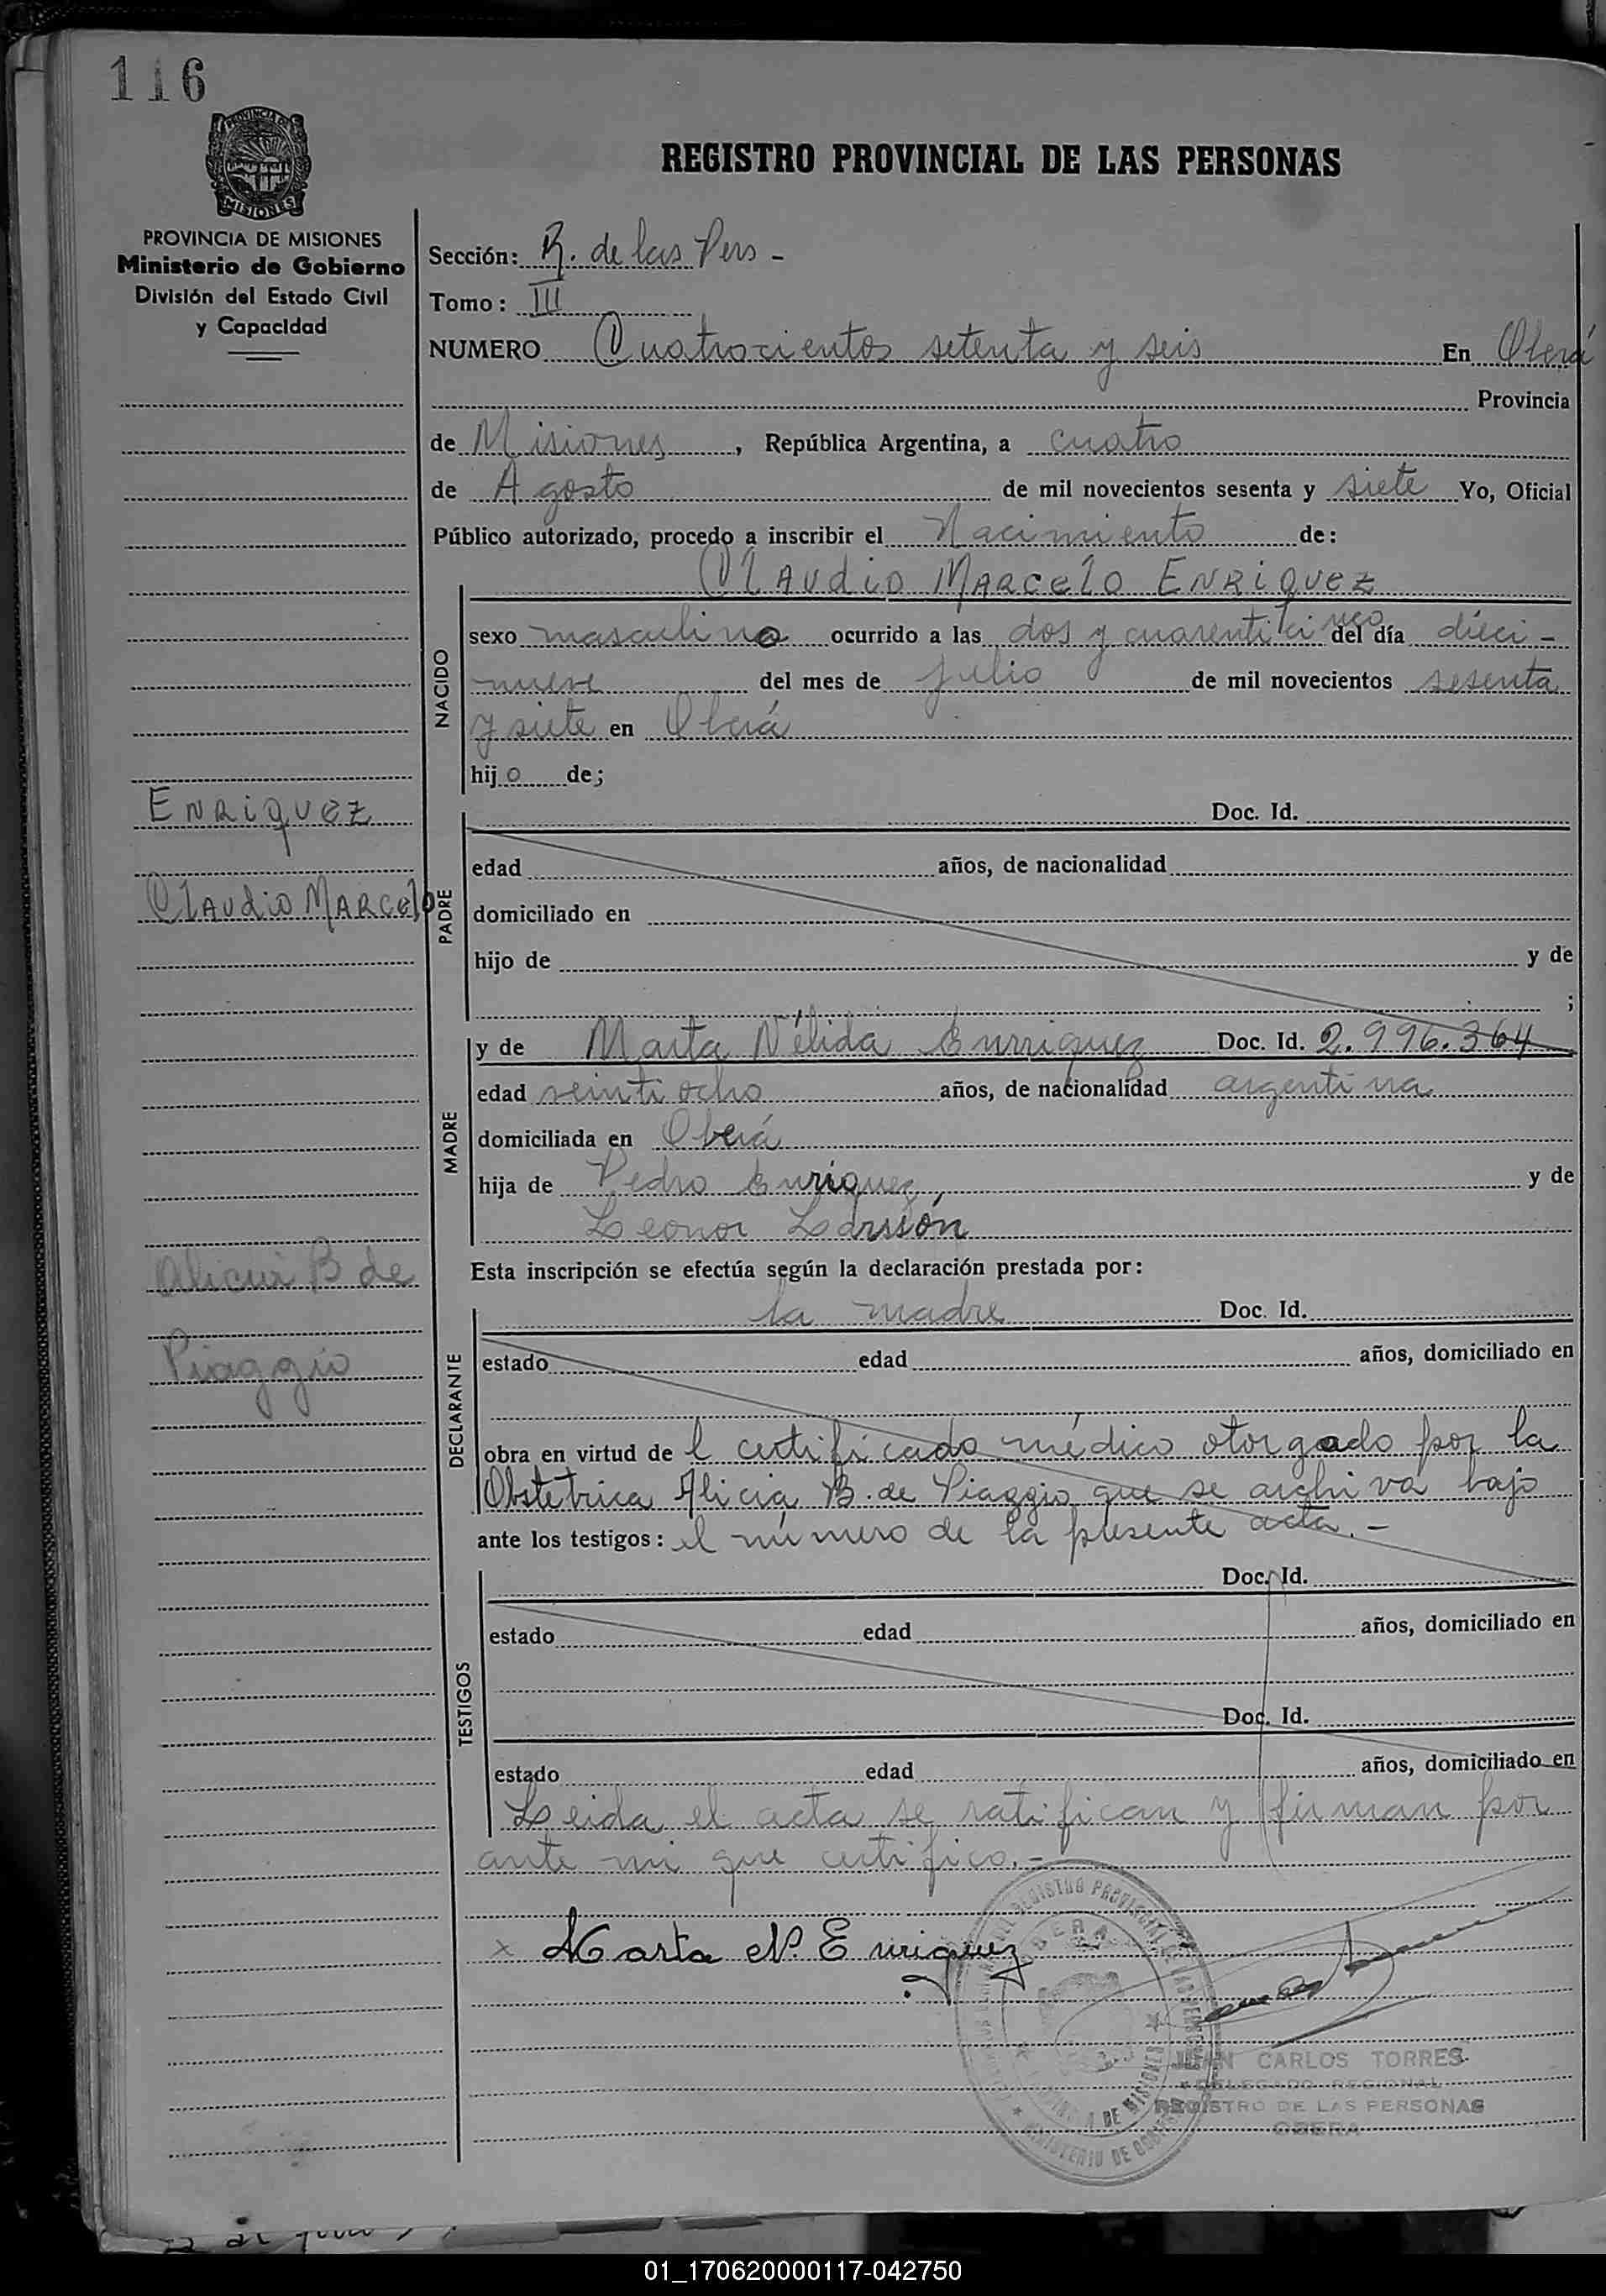 116
PROVINCIA DE
MISIONES
REGISTRO PROVINCIAL DE LAS PERSONAS
PROVINCIA DE MISIONES
Ministerio de Gobierno
División del Estado Civil
y Capacidad
Sección: R. de las Pers -
Tomo: III
NUMERO Cuatrocientos setenta y seis En Oberá
Provincia
de Misiones, República Argentina, a cuatro
de Agosto de mil novecientos sesenta y siete Yo, Oficial
Público autorizado, procedo a inscribir el Nacimiento de:
CLAUdio MARCELO ENRiQUEZ
NACIDO
sexo masculino ocurrido a las dos y cuarenticinco del día dieci-
nueve del mes de julio de mil novecientos sesenta
y siete en Oberá
hijo de;
ENRiQUEZ
CLAUdio MARCELO
PADRE
Doc. Id.
edad años, de nacionalidad
domiciliado en
hijo de y de
;
MADRE
y de Marta Nélida Enriquez Doc. Id. 2.996.364
edad veintiocho años, de nacionalidad argentina
domiciliada en Oberá
hija de Pedro Enriquez, y de
Leonor Larssón
Alicia B de
Piaggio
Esta inscripción se efectúa según la declaración prestada por:
DECLARANTE
la madre Doc. Id.
estado edad años, domiciliado en
obra en virtud de l certificado médico otorgado por la
Obstetrica Alicia B. de Piaggio que se archiva bajo
ante los testigos: el número de la presente acta.-
TESTIGOS
Doc. Id.
estado edad años, domiciliado en
Doc. Id.
estado edad años, domiciliado en
Leida el acta se ratifican y firman por
ante mi que certifico.-
x Marta N. Enriquez
OBERA
JUAN CARLOS TORRES
DELEGADO REGIONAL
REGISTRO DE LAS PERSONAS
OBERA
01_170620000117-042750